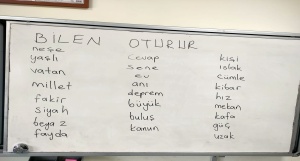 BİLEN OTURUR
neşe
yaşlı
vatan
millet
fakir
siyah
beyaz
fayda
cevap
sene
ev
anı
deprem
büyük
buluş
kanun
kişi
ıslak
cümle
kibar
hız
mekan
kafa
güç
uzak